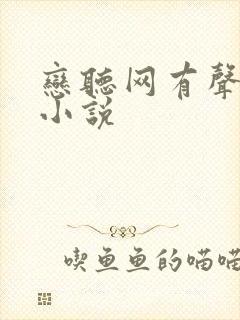 戀聽网有聲
小說
喫鱼鱼的喵喵